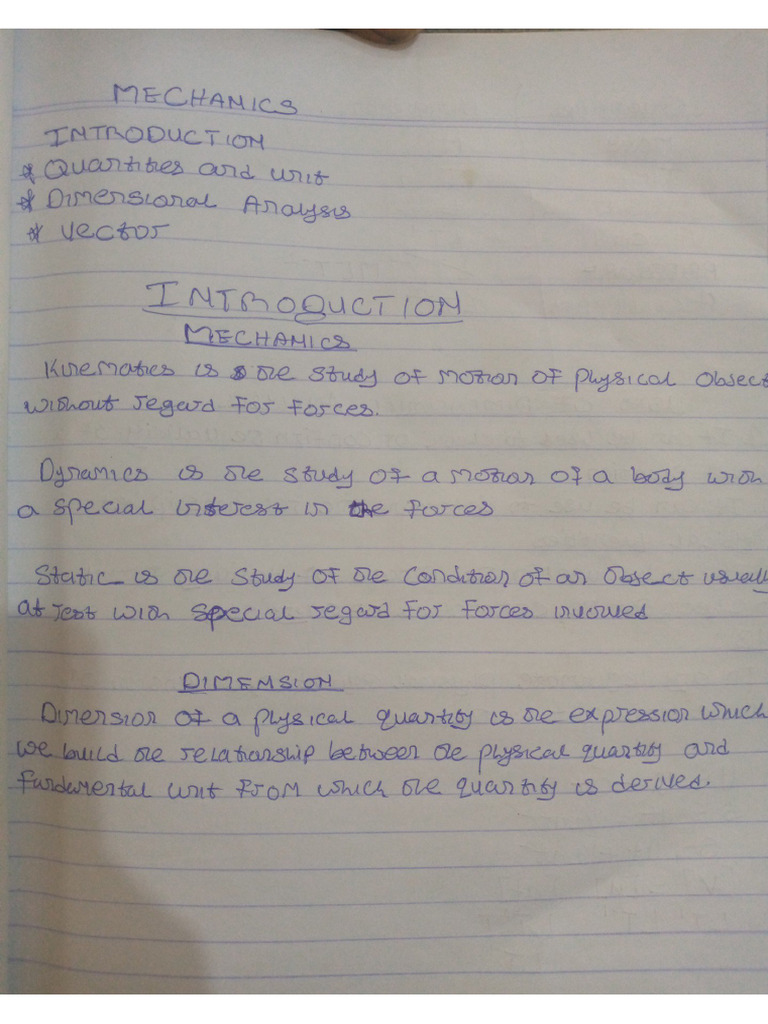 MECHANICS
INTRODUCTION
* Quantities and unit
* Dimensional Analysis
* Vector
INTRODUCTION
MECHANICS
Kinematics is the study of motion of physical object
without regard for forces.
Dynamics is the study of a motion of a body with
a special interest in the forces
Static is the study of the condition of an object usually
at rest with special regard for forces involved
DIMENSION
Dimension of a physical quantity is the expression which
we build the relationship between the physical quantity and
fundamental unit from which the quantity is derived.